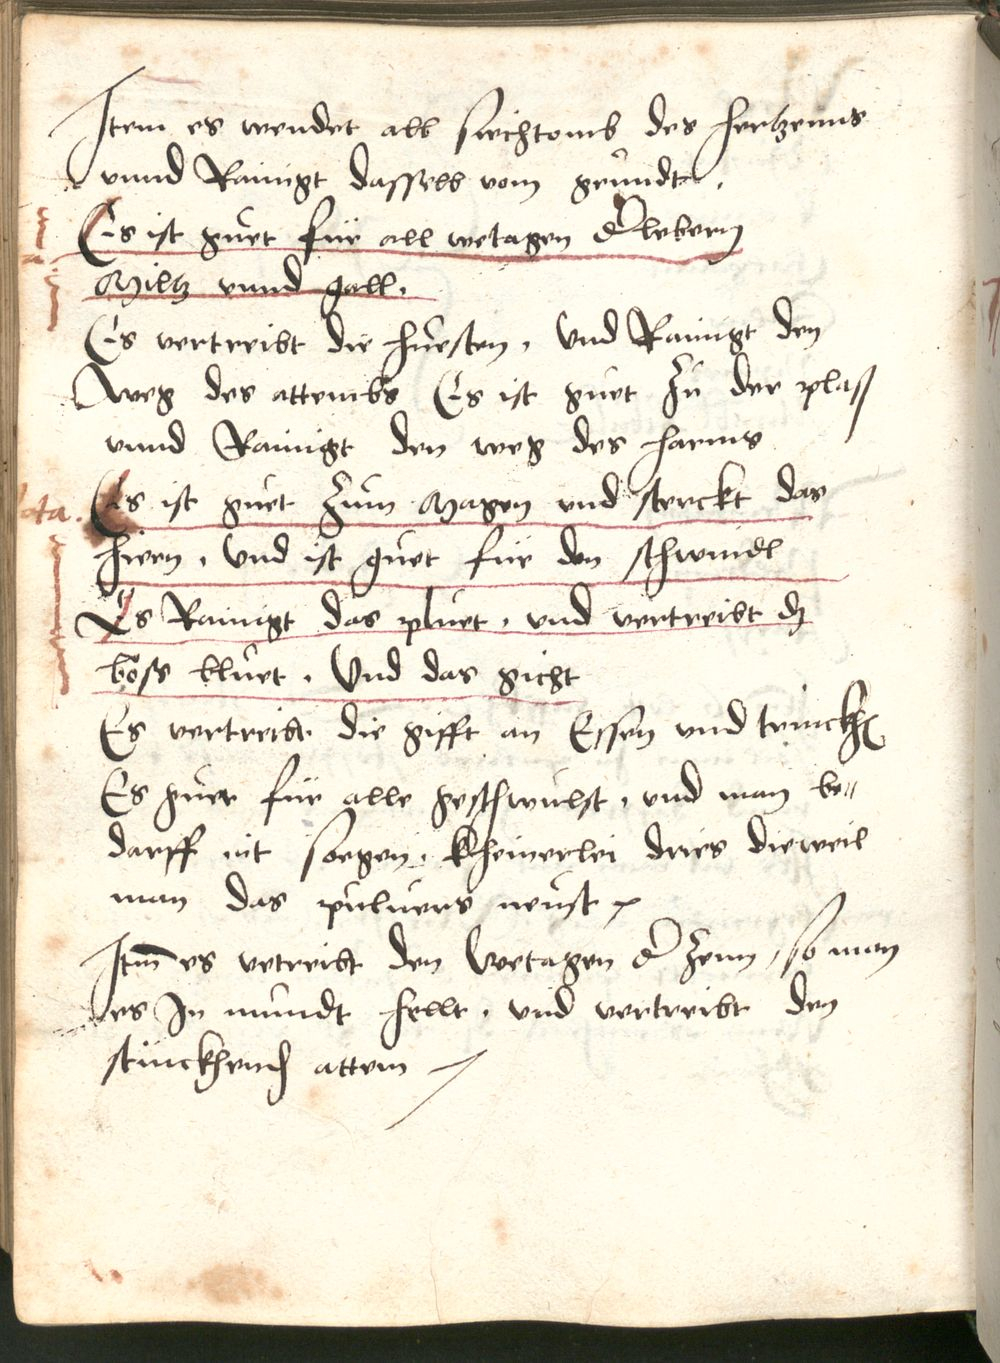 Item es wendet all siechtomb des hertzenns
vnnd Rainigt dasselb vom grundt.
Es ist guet für all wetagen dr lebern
Miltz vnnd gall.
Es vertreibt die huesten. Vnd Rainigt den
weg des attembs Es ist guet Zu der plaß
vnnd Rainigt den weg des harms
ota. Es ist guet Zum Magen vnd sterckt das
hiern. Vnd ist guet für den schwindl
Es Rainigt das pluet. vnd vertreibt dz
böss bluet. Vnd das gicht
Es vertreibt die gifft an Essen vnd trinckhen
Es guet für alle geschwulst. vnd man be„
darff nit sorgen. kheinerlei dries dieweil
man das puluers neust
Itm es vetreibt den Wetagen dr Zenn, so man
es In mundt hellt. vnd vertreibt den
stinckhend attem